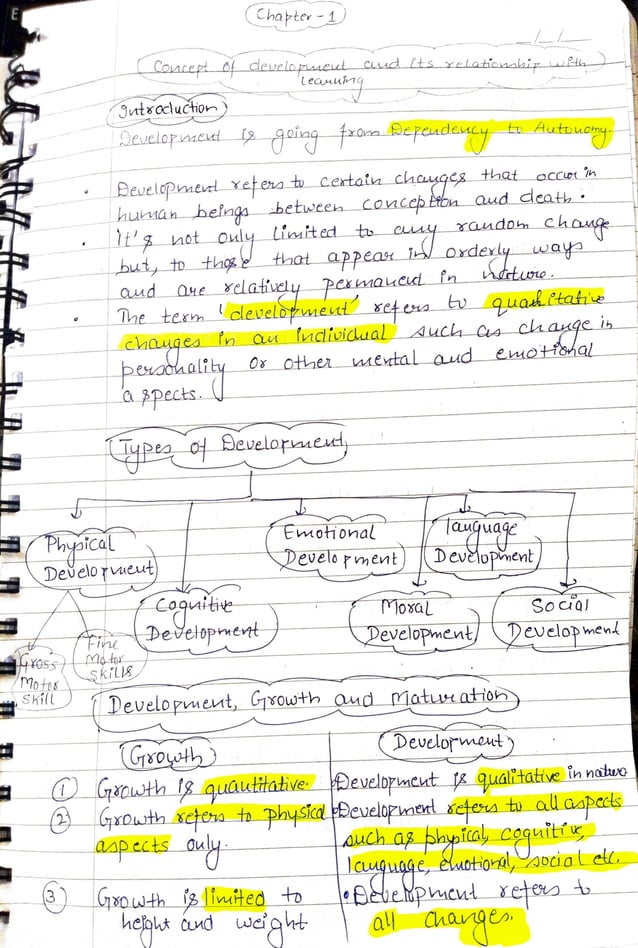 Chapter - 1
Concept of development and its relationship with
learning
Introduction
Development is going from Dependency to Autonomy.
Development refers to certain changes that occur in
human beings between conception and death.
It's not only limited to any random change
but, to those that appear in orderly ways
and are relatively permanent in nature.
The term 'development' refers to qualitative
changes in an individual such as change in
personality or other mental and emotional
aspects.
Types of Development
Physical
Development
Emotional
Development
language
Development
Cognitive
Development
Moral
Development
Social
Development
Gross
Motor
Skill
Fine
Motor
Skills
Development, Growth and Maturation
Growth
Development
① Growth is quantitative.
② Growth refers to physical
aspects only.
③ Growth is limited to
height and weight
• Development is qualitative in nature
• Development refers to all aspects
such as physical, cognitive,
language, emotional, social etc.
• Development refers to
all changes.